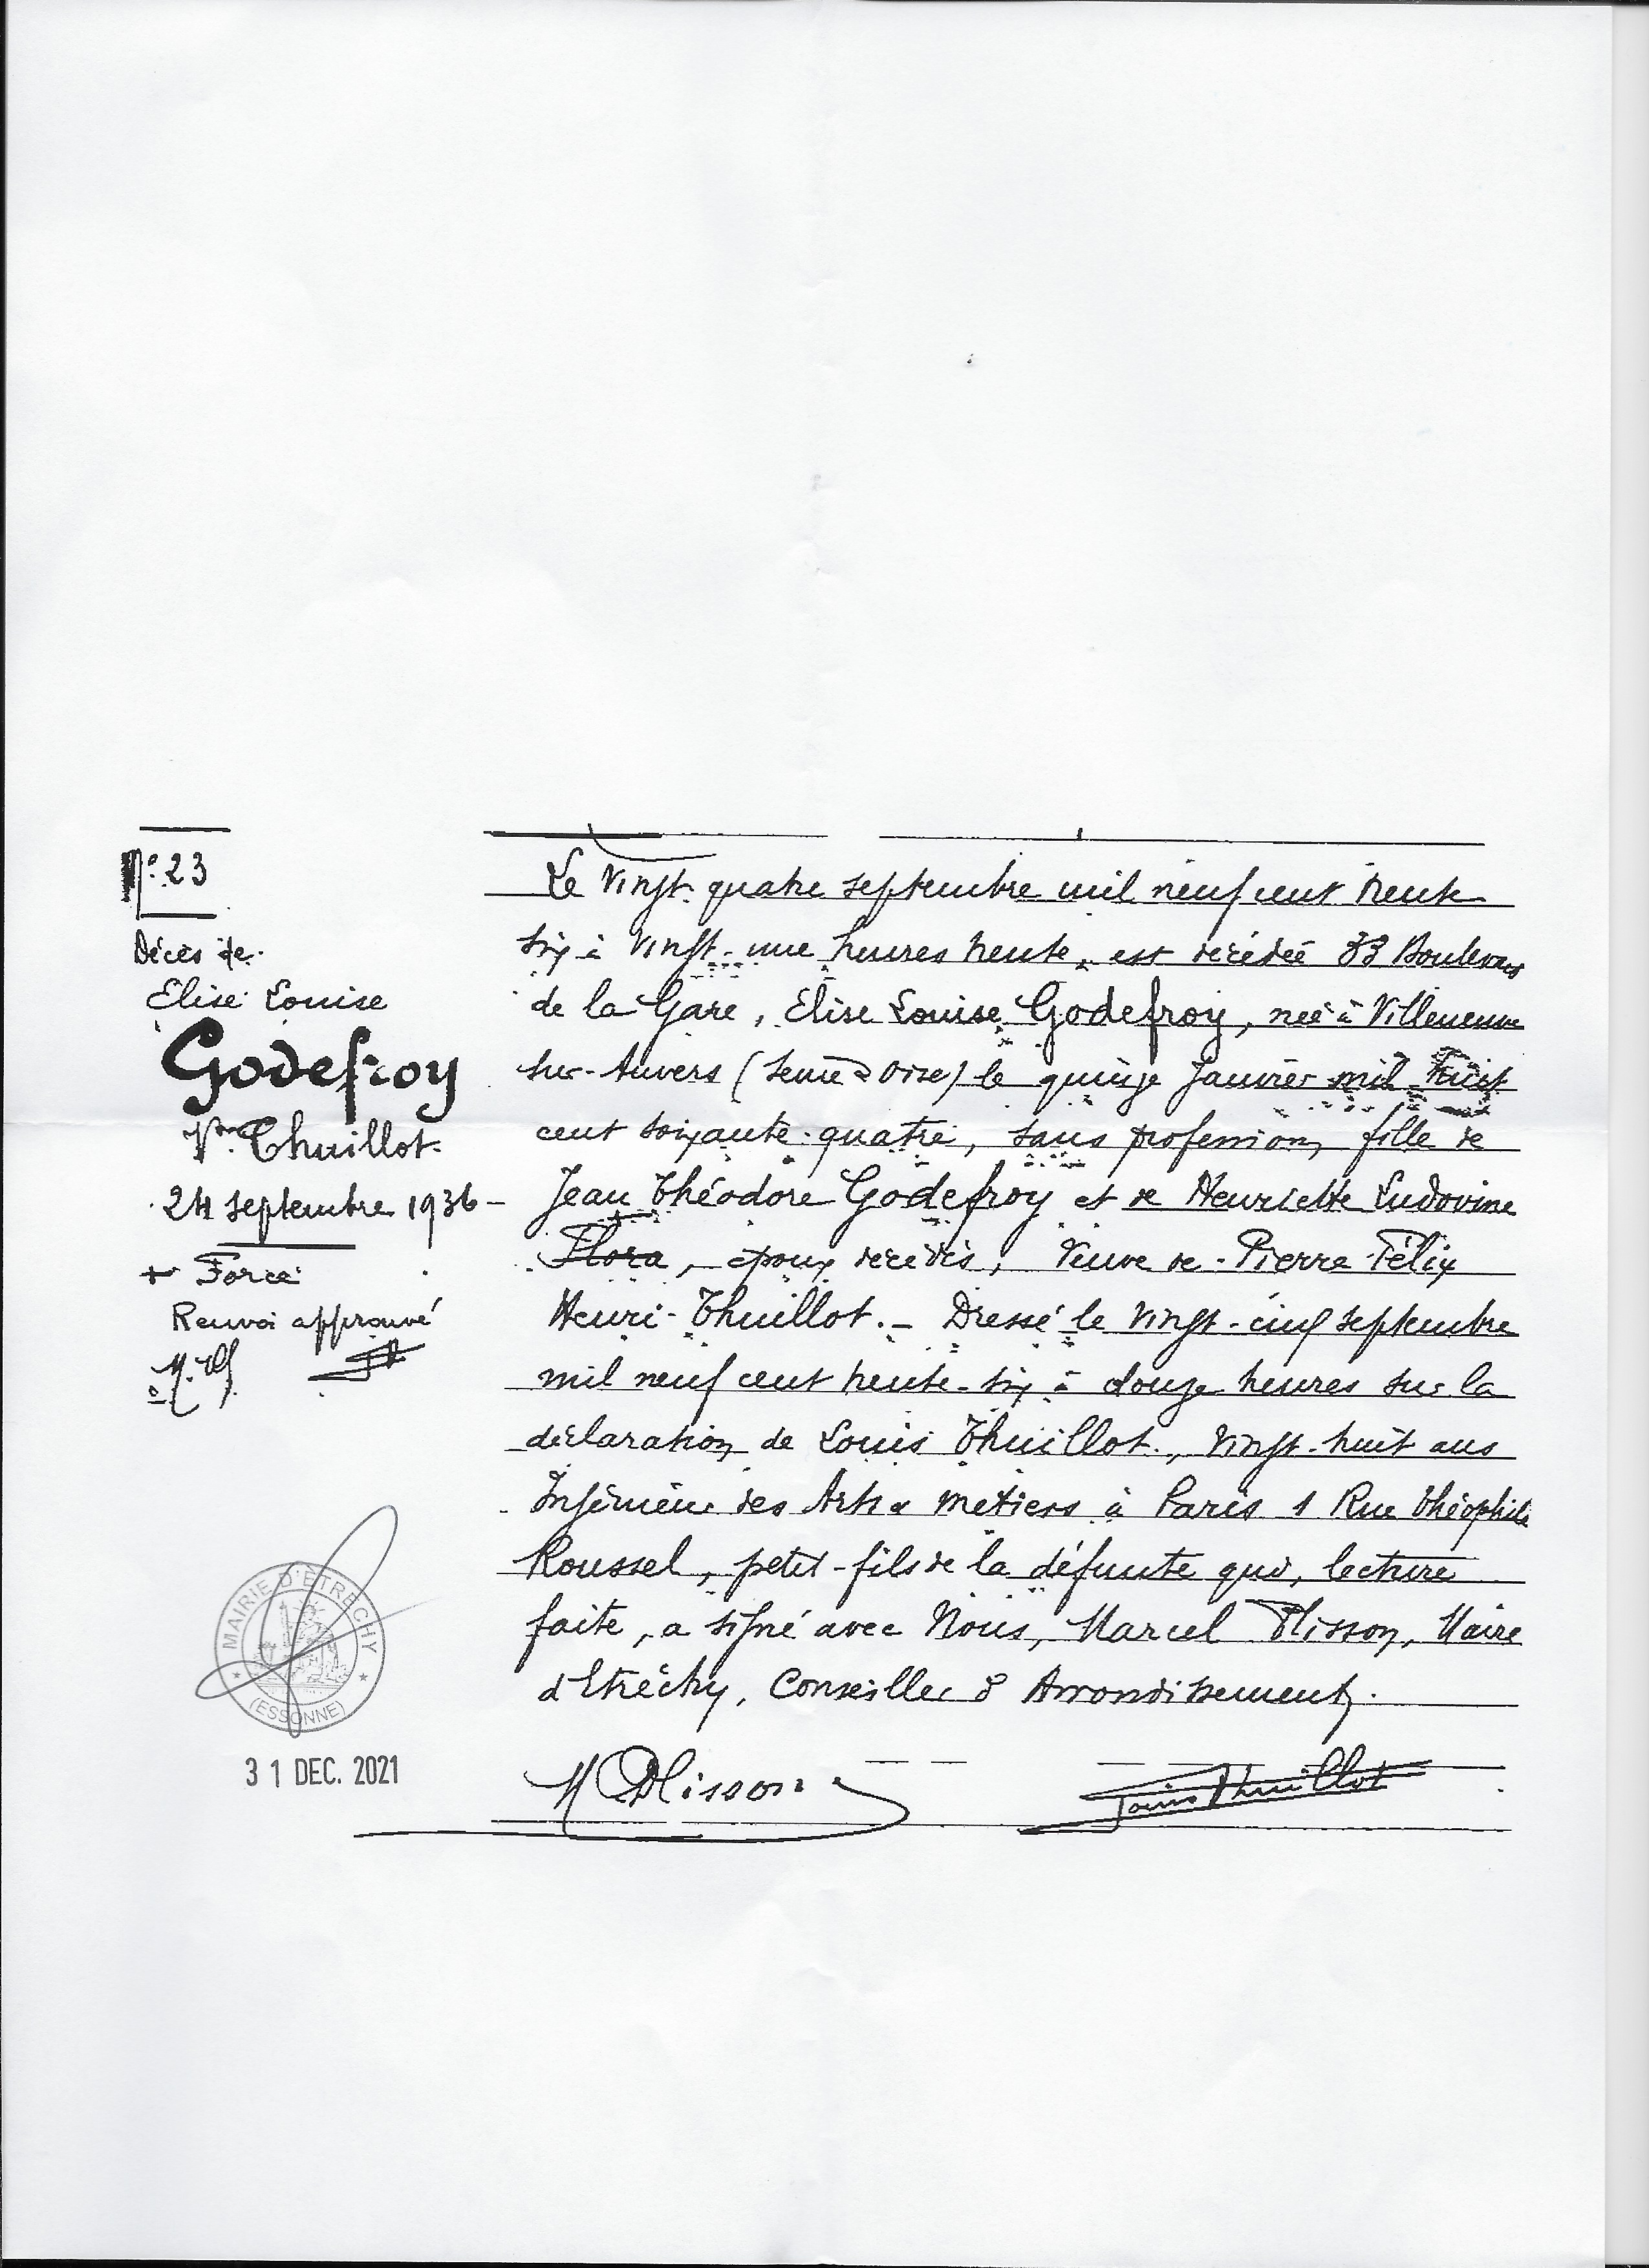 N° 23
Décès de
Elise Louise
Godefroy
Vve Thuillot
24 septembre 1936
+ Force
Renvoi approuvé
Le vingt quatre septembre mil neuf cent trente
six à vingt-une heures trente, est décédée 33 Boulevard
de la Gare, Elise Louise Godefroy, née à Villeneuve
sur-Auvers (Seine & Oise) le quinze Janvier mil huit
cent soixante-quatre, sans profession, fille de
Jean Théodore Godefroy et de Henriette Ludovine
+ Flora, époux décédés, Veuve de Pierre Félix
Henri Thuillot. - Dressé le vingt-cinq septembre
mil neuf cent trente-six à douze heures sur la
déclaration de Louis Thuillot, vingt-huit ans
Ingénieur des Arts & Métiers à Paris 1 Rue Théophile
Roussel, petit-fils de la défunte qui, lecture
faite, a signé avec Nous, Marcel Plisson, Maire
d'Etréchy, Conseiller d'Arrondissement.
M Plisson
Louis Thuillot
MAIRIE D'ETRECHY
(ESSONNE)
31 DEC. 2021